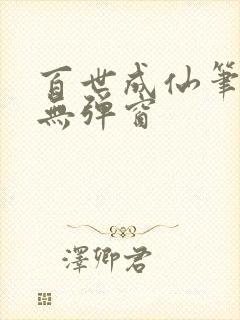 百世成仙筆
無彈窗
澤卿君